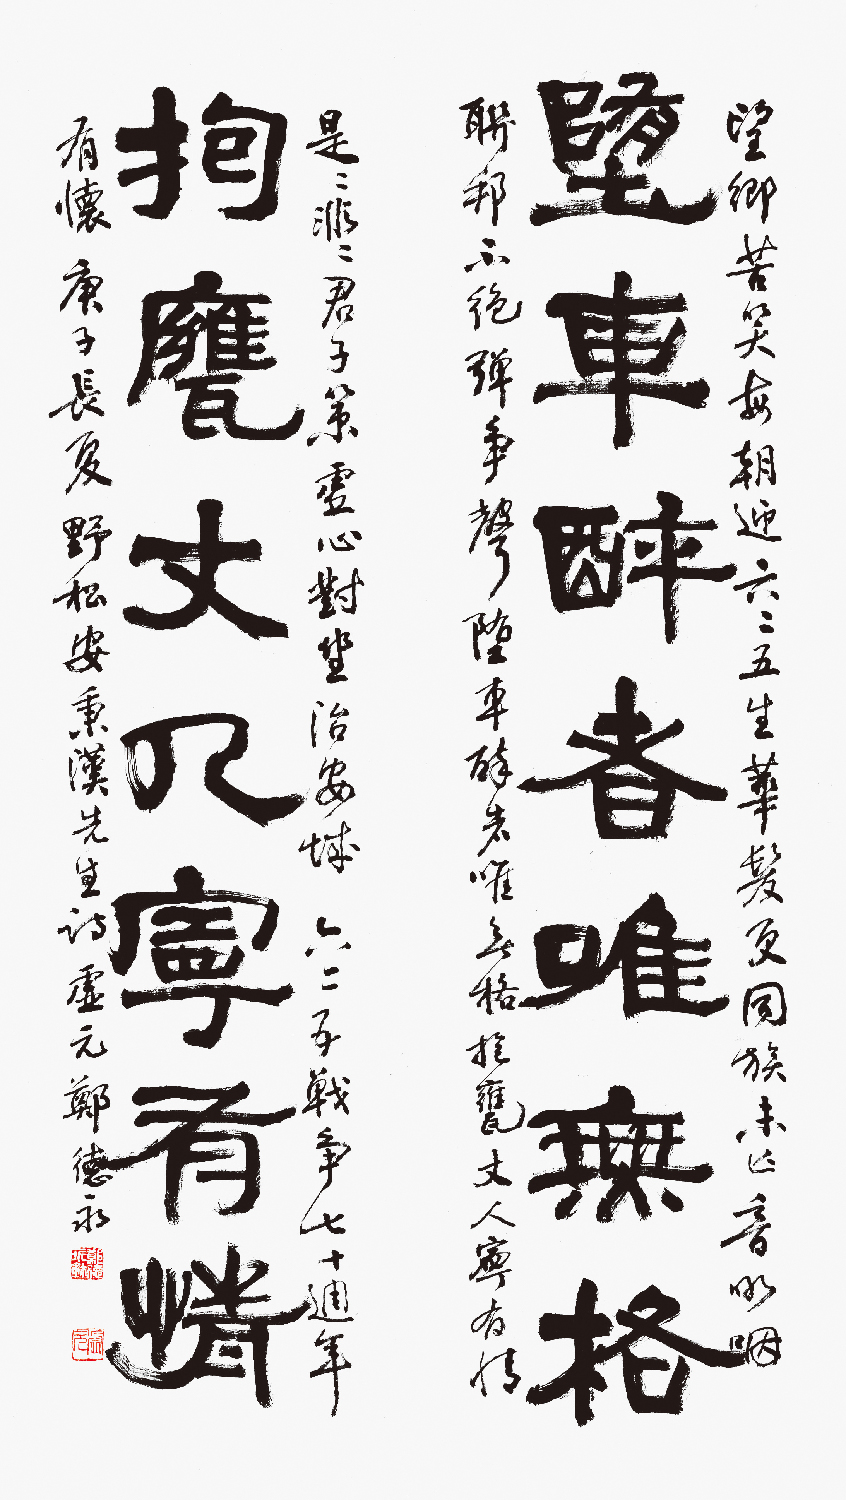 望鄉苦笑每朝迎六二五生華髮更同族未亡音咽
墮車醉者唯無格
聯邦不絕彈爭聲墮車醉者唯無格抱甕丈人寧有情
是〻非〻君子策虛心對坐治安城 六二五戰爭七十週年
抱甕丈人寧有情
有懷 庚子長夏 野松安秉漢先生詩 虛元 鄭德永